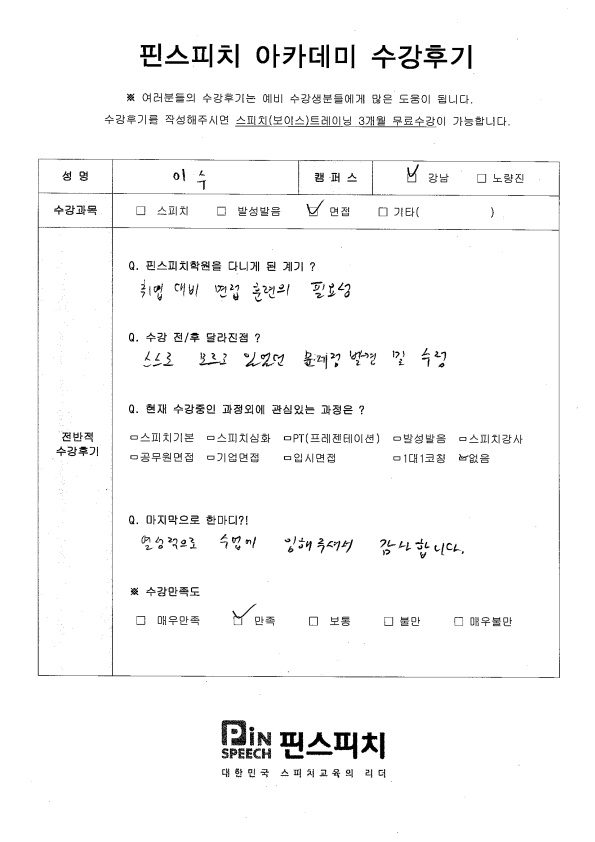 핀스피치 아카데미 수강후기
※ 여러분들의 수강후기는 예비 수강생분들에게 많은 도움이 됩니다.
수강후기를 작성해주시면 스피치(보이스)트레이닝 3개월 무료수강이 가능합니다.
성 명 이 수 캠 퍼 스 ☑ 강남 □ 노량진
수강과목 □ 스피치 □ 발성발음 ☑ 면접 □ 기타( )
전반적
수강후기
Q. 핀스피치학원을 다니게 된 계기 ?
취업 대비 면접 훈련의 필요성
Q. 수강 전/후 달라진점 ?
스스로 모르고 있었던 문제점 발견 및 수정
Q. 현재 수강중인 과정외에 관심있는 과정은 ?
□스피치기본 □스피치심화 □PT(프레젠테이션) □발성발음 □스피치강사
□공무원면접 □기업면접 □입시면접 □1대1코칭 ☑없음
Q. 마지막으로 한마디?!
열성적으로 수업에 임해주셔서 감사합니다.
※ 수강만족도
□ 매우만족 ☑ 만족 □ 보통 □ 불만 □ 매우불만
PiN
SPEECH 핀스피치
대한민국 스피치교육의 리더